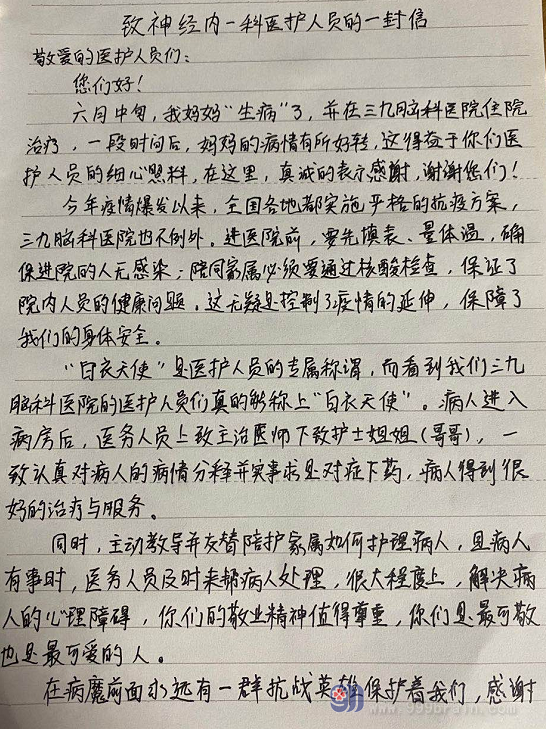 致神经内一科医护人员的一封信
敬爱的医护人员们：
您们好！
六月中旬，我妈妈“生病”了，并在三九脑科医院住院
治疗，一段时间后，妈妈的病情有所好转，这得益于你们医
护人员的细心照料，在这里，真诚的表示感谢，谢谢您们！
今年疫情爆发以来，全国各地都实施严格的抗疫方案，
三九脑科医院也不例外。进医院前，要先填表、量体温，确
保进院的人无感染；陪同家属必须要通过核酸检查，保证了
院内人员的健康问题。这无疑是控制了疫情的延伸，保障了
我们的身体安全。
“白衣天使”是医护人员的专属称谓，而看到我们三九
脑科医院的医护人员们真的能称上“白衣天使”。病人进入
病房后，医务人员上致主治医师下致护士姐姐（哥哥），一
致认真对病人的病情分释并实事求是对症下药，病人得到很
好的治疗与服务。
同时，主动教导并友替陪护家属如何护理病人，且病人
有事时，医务人员及时来帮病人处理，很大程度上，解决病
人的心理障碍，你们的敬业精神值得尊重，你们是最可敬
也是最可爱的人。
在病魔前面永远有一群抗战英雄保护着我们，感谢
www.999brain.com